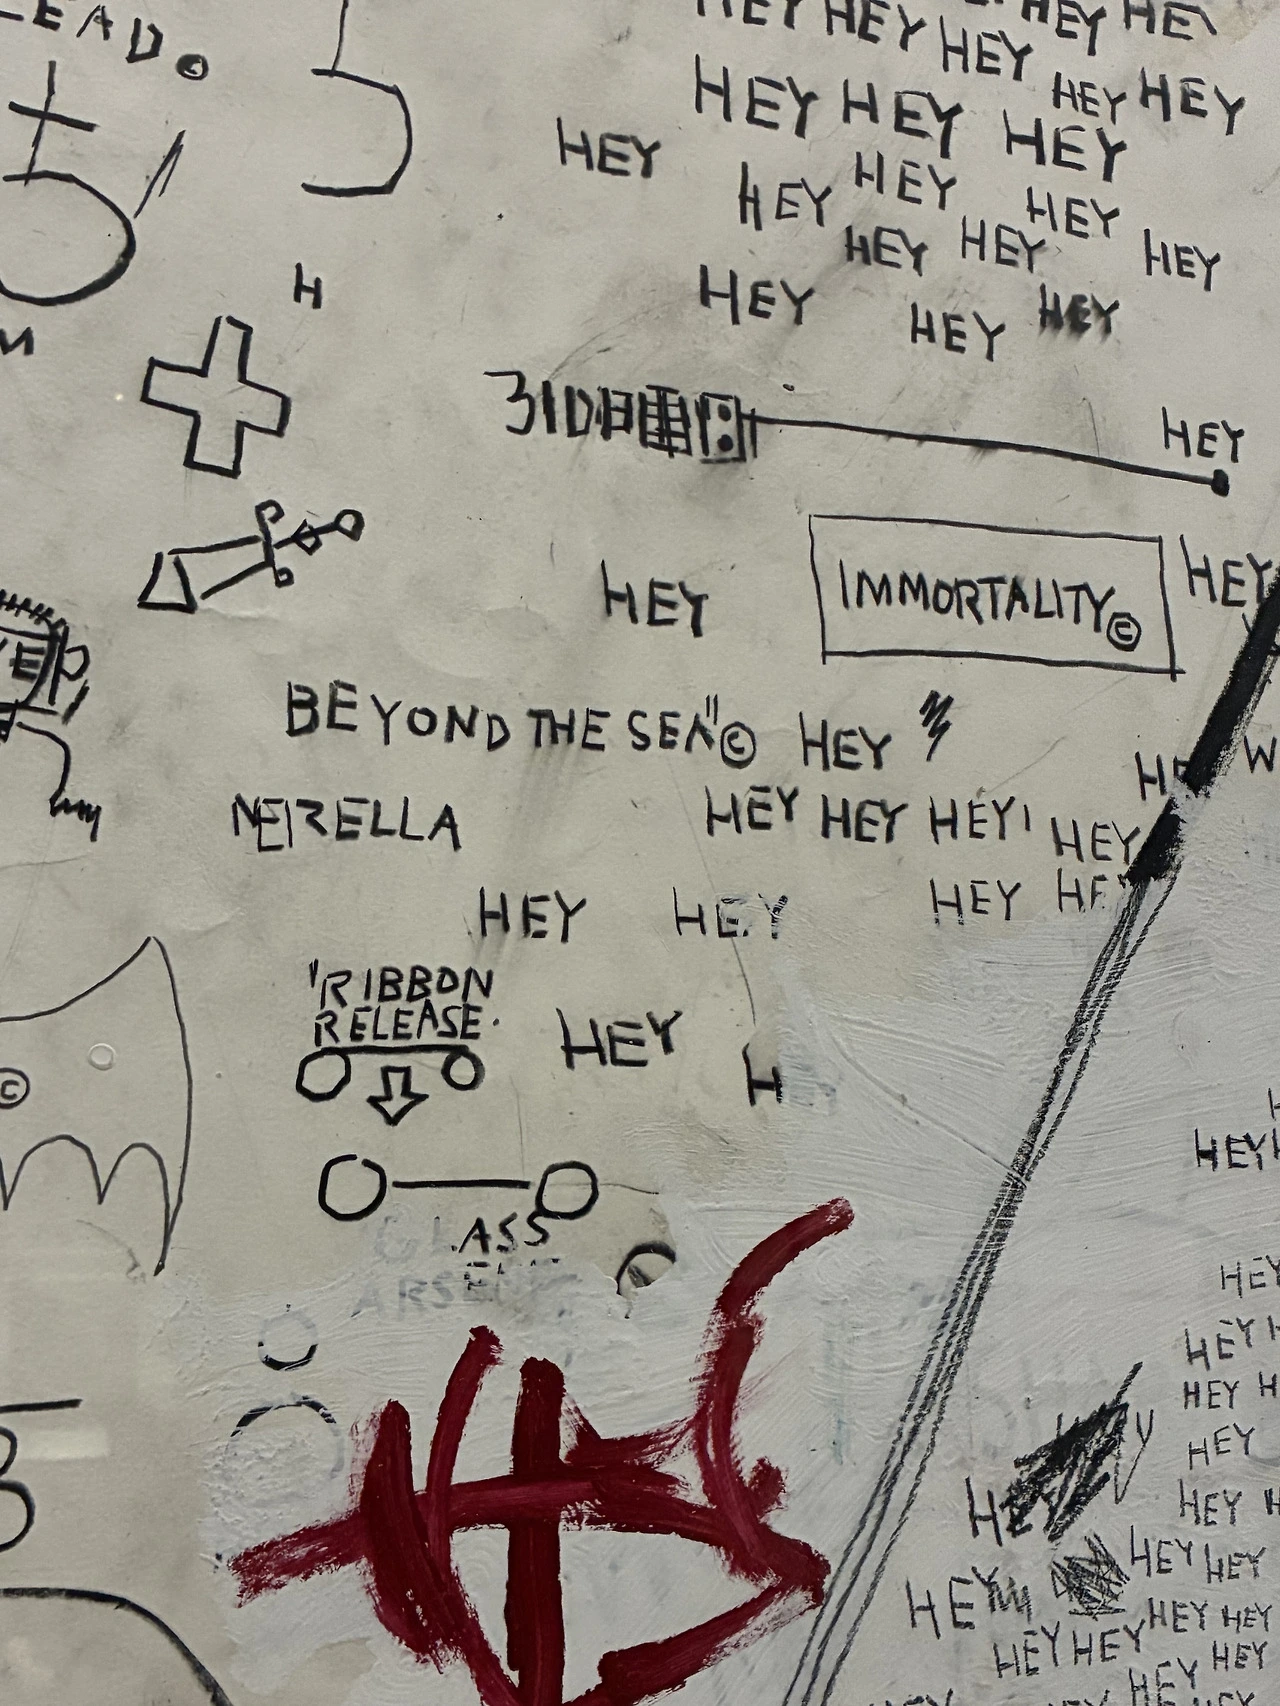 LEAD.
HEY HEY HEY HEY
HEY
HEY HEY
HEY HEY HEY
HEY
HEY HEY
HEY HEY
HEY HEY HEY
H
HEY HEY HEY
HEY
IMMORTALITY© HEY
HEY
BEYOND THE SEA"© HEY
NERELLA
HEY HEY HEY HEY
HEY HEY HEY
"RIBBON
RELEASE.
HEY
H
©
HEY
HEY
HEY
HEY
HEY
HEY
HEY HEY
HEY HEY HEY
HEY HEY HEY
HEY